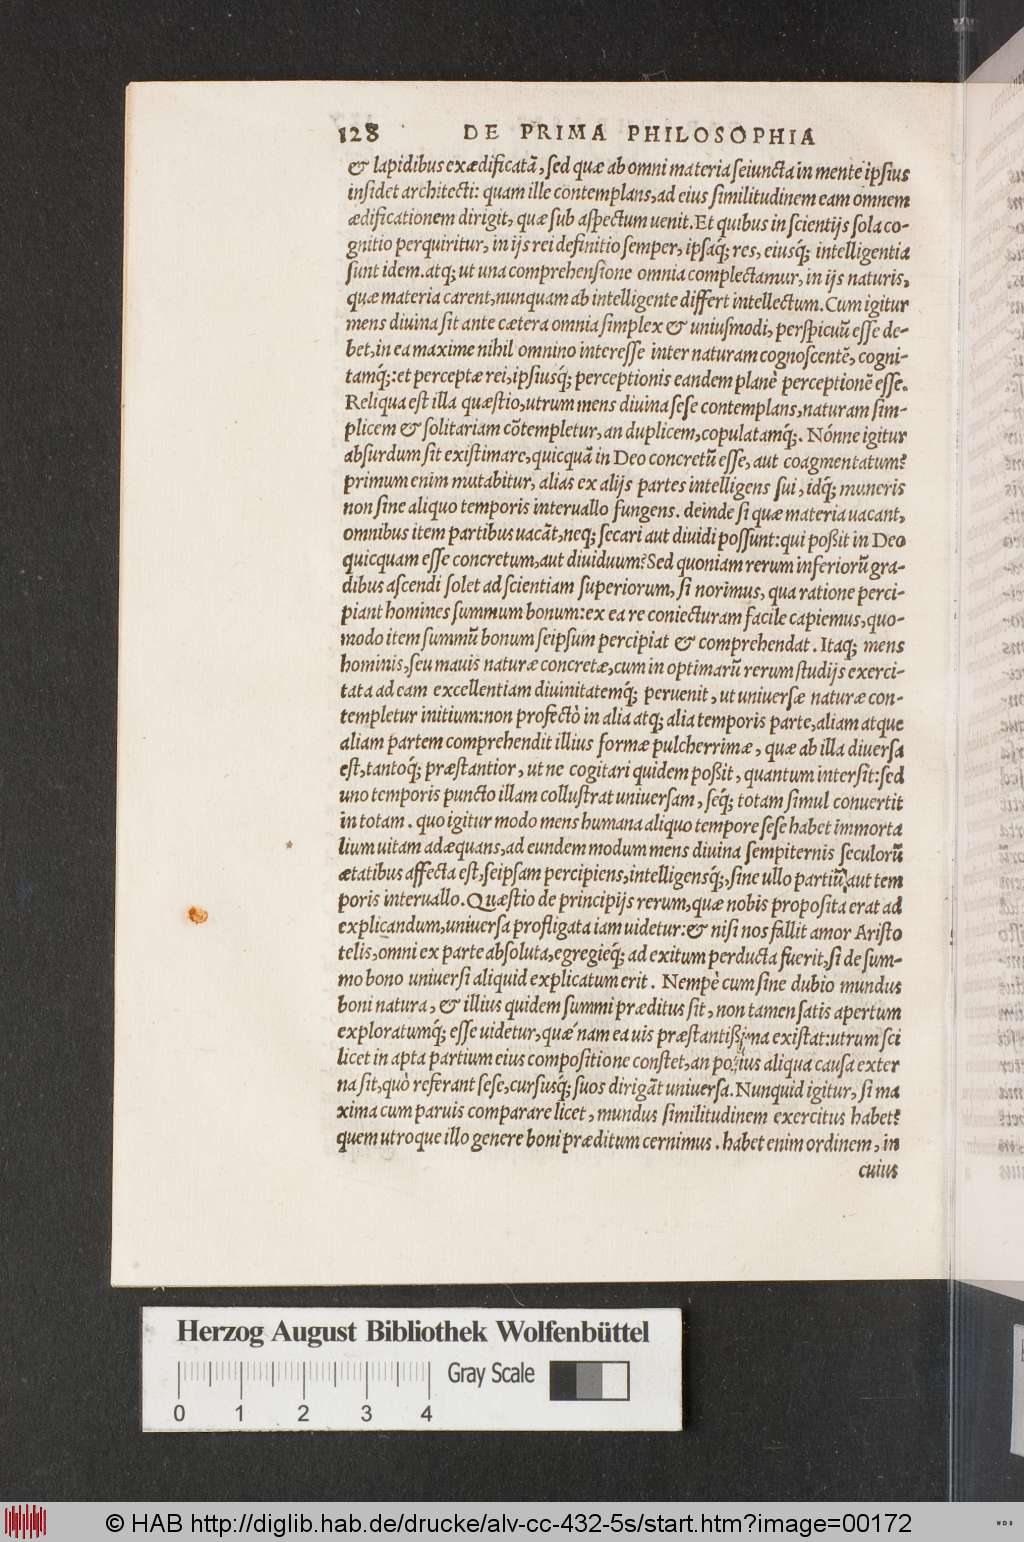 128 DE PRIMA PHILOSOPHIA
& lapidibus exædificatã, sed quæ ab omni materia seiuncta in mente ipsius
insidet architecti: quam ille contemplans, ad eius similitudinem eam omnem
ædificationem dirigit, quæ sub aspectum uenit. Et quibus in scientijs sola co-
gnitio perquiritur, in ijs rei definitio semper, ipsaq́; res, eiusq́; intelligentia
sunt idem. atq; ut una comprehensione omnia complectamur, in ijs naturis,
quæ materia carent, nunquam ab intelligente differt intellectum. Cum igitur
mens diuina sit ante cætera omnia simplex & uniusmodi, perspicuũ esse de-
bet, in ea maxime nihil omnino interesse inter naturam cognoscentẽ, cogni-
tamq́;: et perceptæ rei, ipsiusq́; perceptionis eandem planè perceptionẽ esse.
Reliqua est illa quæstio, utrum mens diuina sese contemplans, naturam sim-
plicem & solitariam cõtempletur, an duplicem, copulatamq́;. Nónne igitur
absurdum sit existimare, quicquã in Deo concretũ esse, aut coagmentatum?
primum enim mutabitur, alias ex alijs partes intelligens sui, idq́; muneris
non sine aliquo temporis interuallo fungens. deinde si quæ materia uacant,
omnibus item partibus uacãt, neq; secari aut diuidi possunt: qui poßit in Deo
quicquam esse concretum, aut diuiduum? Sed quoniam rerum inferiorũ gra-
dibus ascendi solet ad scientiam superiorum, si norimus, qua ratione perci-
piant homines summum bonum: ex ea re coniecturam facile capiemus, quo-
modo item summũ bonum seipsum percipiat & comprehendat. Itaq; mens
hominis, seu mauis naturæ concretæ, cum in optimarũ rerum studijs exerci-
tata ad eam excellentiam diuinitatemq́; peruenit, ut uniuersæ naturæ con-
templetur initium: non profectò in alia atq; alia temporis parte, aliam atque
aliam partem comprehendit illius formæ pulcherrimæ, quæ ab illa diuersa
est, tantoq́; præstantior, ut ne cogitari quidem poßit, quantum intersit: sed
uno temporis puncto illam collustrat uniuersam, seq́; totam simul conuertit
in totam. quo igitur modo mens humana aliquo tempore sese habet immorta
lium uitam adæquans, ad eundem modum mens diuina sempiternis seculorũ
ætatibus affecta est, seipsam percipiens, intelligensq́;, sine ullo partiũ aut tem
poris interuallo. Quæstio de principijs rerum, quæ nobis proposita erat ad
explicandum, uniuersa profligata iam uidetur: & nisi nos fallit amor Aristo
telis, omni ex parte absoluta, egregieq́; ad exitum perducta fuerit, si de sum-
mo bono uniuersi aliquid explicatum erit. Nempè cum sine dubio mundus
boni natura, & illius quidem summi præditus sit, non tamen satis apertum
exploratumq́; esse uidetur, quæ nam ea uis præstantißima existat: utrum sci
licet in apta partium eius compositione constet, an potius aliqua causa exter
na sit, quò referant sese, cursusq́; suos dirigãt uniuersa. Nunquid igitur, si ma
xima cum paruis comparare licet, mundus similitudinem exercitus habet?
quem utroque illo genere boni præditum cernimus. habet enim ordinem, in
cuius
Herzog August Bibliothek Wolfenbüttel
Gray Scale
0 1 2 3 4
© HAB http://diglib.hab.de/drucke/alv-cc-432-5s/start.htm?image=00172